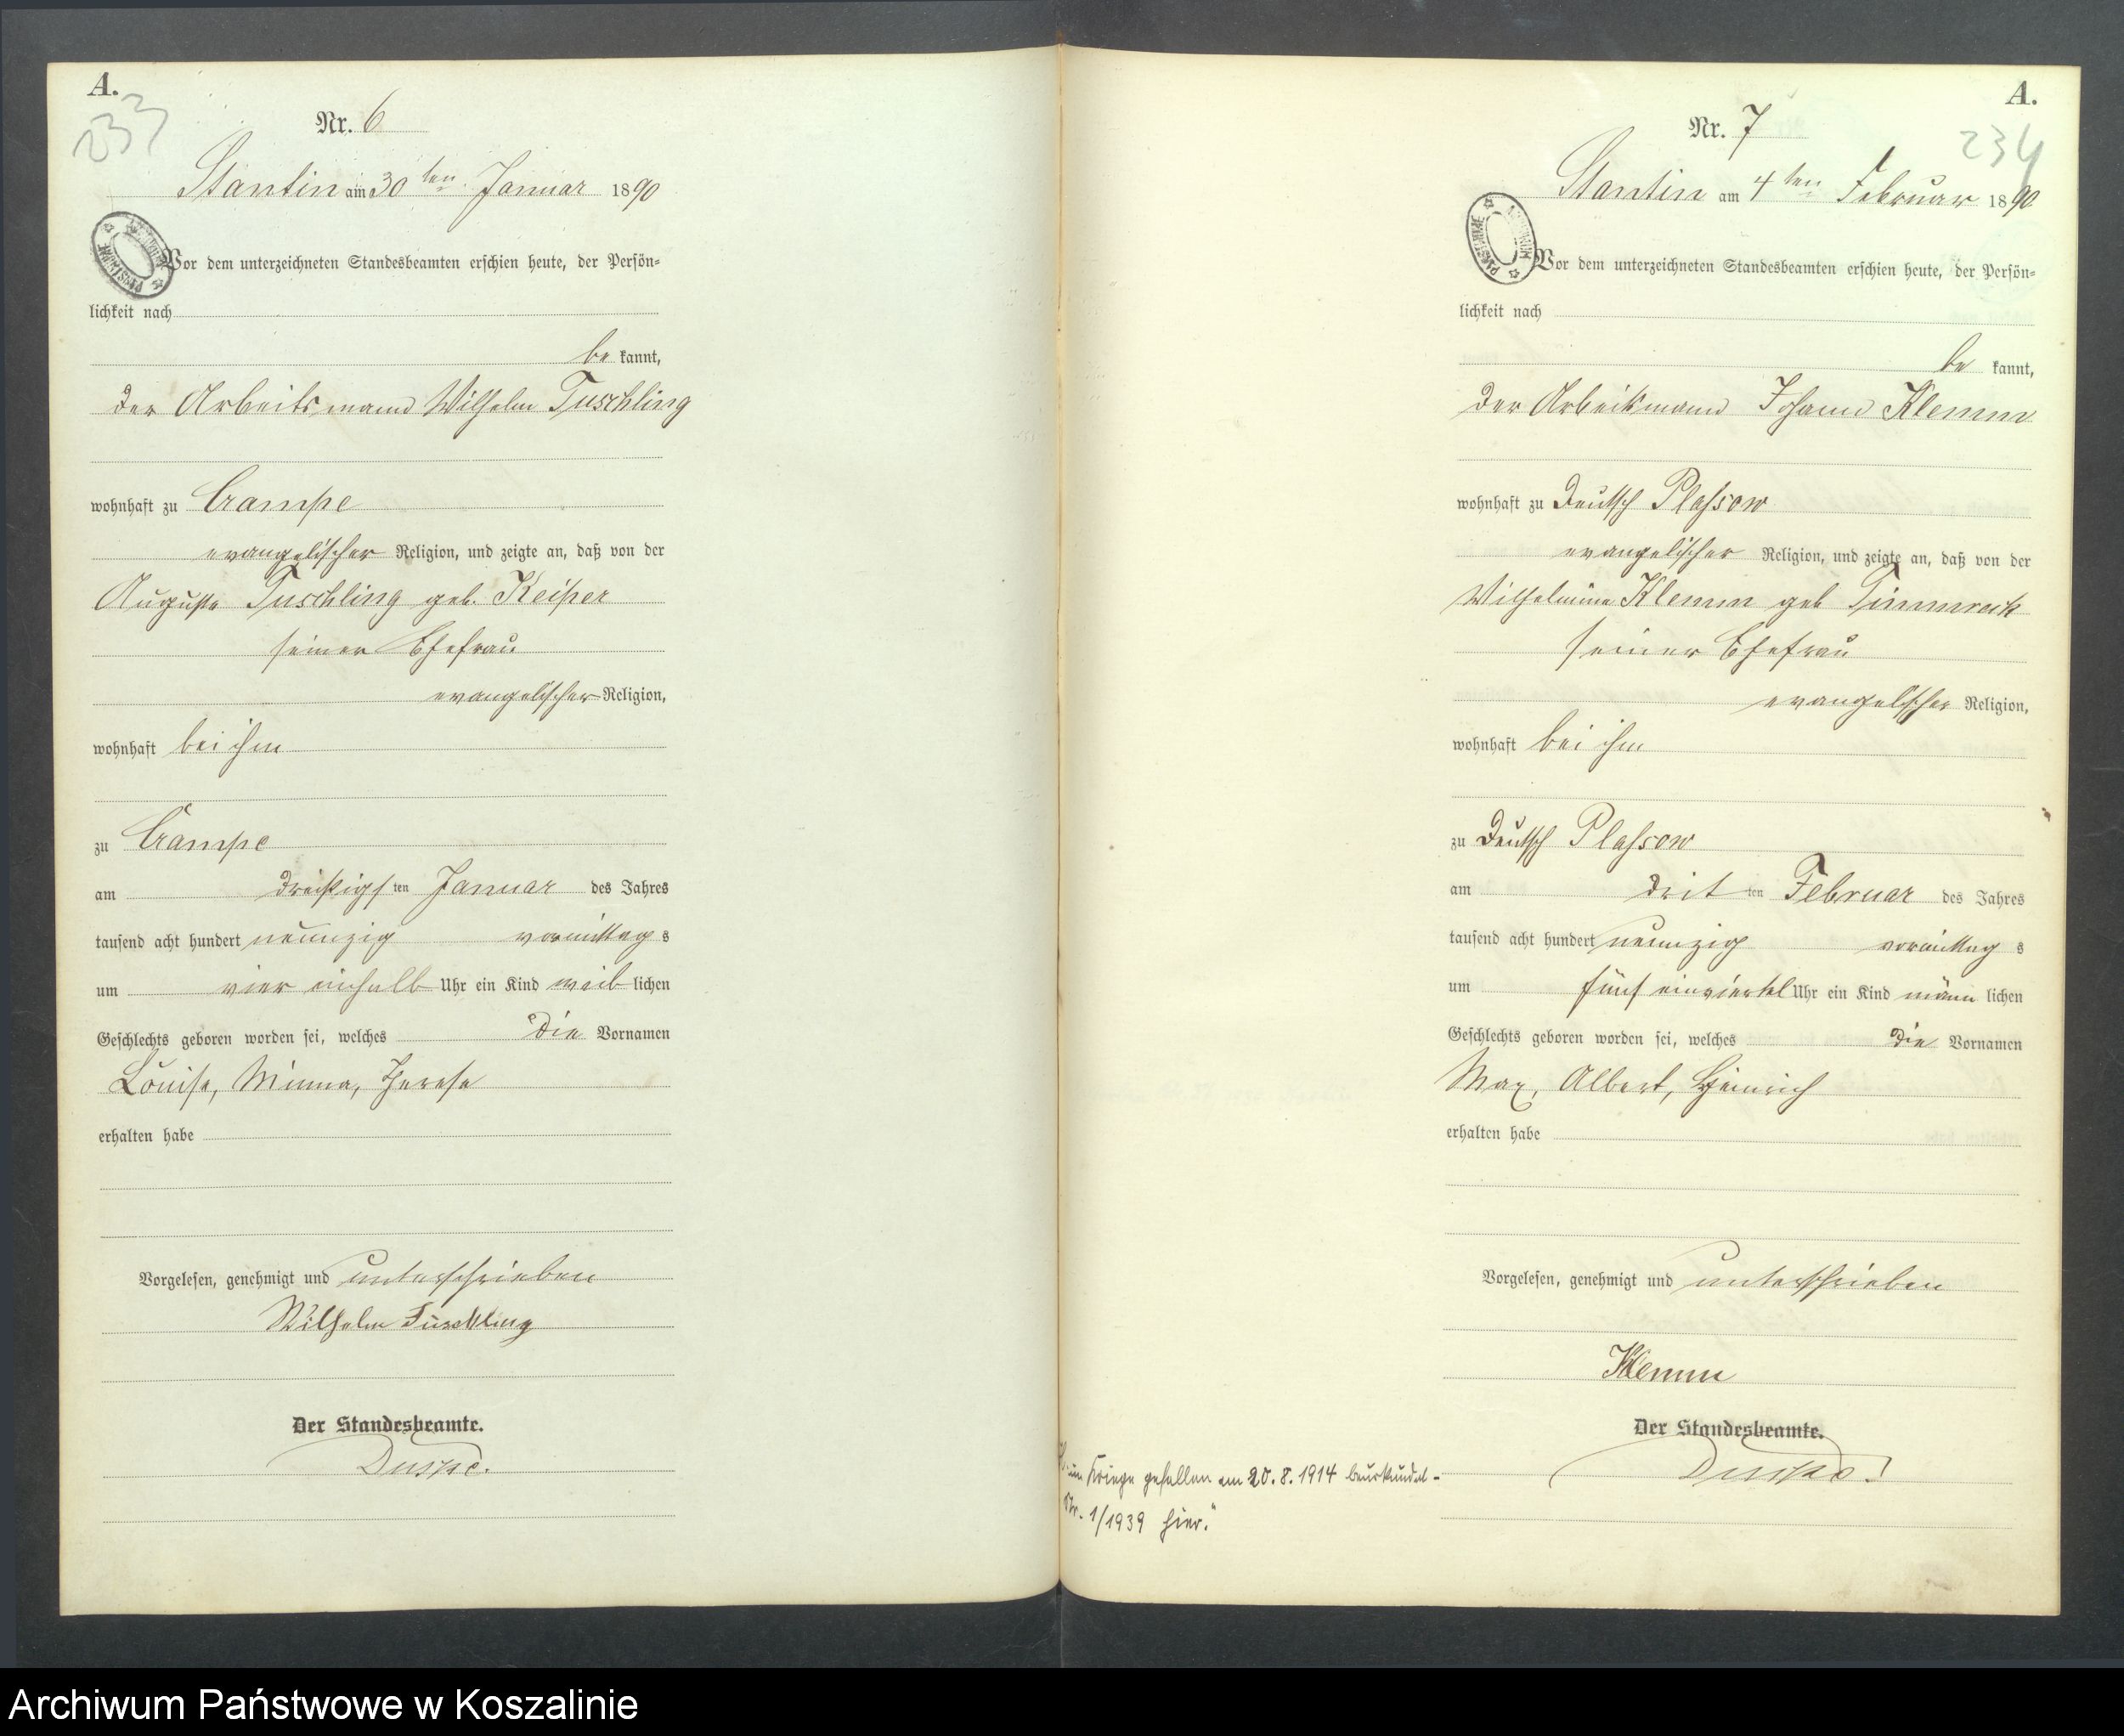 A.
233
Nr. 6
Stantin am 30ten Januar 1890
Vor dem unterzeichneten Standesbeamten erschien heute, der Persön=
lichkeit nach
be kannt,
der Arbeitsmann Wilhelm Tuschling
wohnhaft zu Crampe
evangelischer Religion, und zeigte an, daß von der
Auguste Tuschling geb. Keiper
seiner Ehefrau
evangelischer Religion,
wohnhaft bei ihm
zu Crampe
am dreißigsten Januar des Jahres
tausend acht hundert neunzig vormittags
um vier einhalb Uhr ein Kind weiblichen
Geschlechts geboren worden sei, welches die Vornamen
Louise, Minna, Therese
erhalten habe
Vorgelesen, genehmigt und unterschrieben
Wilhelm Tuschling
Der Standesbeamte.
A.
234
Nr. 7
Stantin am 4ten Februar 1890
Vor dem unterzeichneten Standesbeamten erschien heute, der Persön=
lichkeit nach
be kannt,
der Arbeitsmann Johann Klemm
wohnhaft zu Deutsch Plassow
evangelischer Religion, und zeigte an, daß von der
Wilhelmine Klemm geb Timmreck
seiner Ehefrau
evangelischer Religion,
wohnhaft bei ihm
zu Deutsch Plassow
am dritten Februar des Jahres
tausend acht hundert neunzig vormittags
um fünf einviertel Uhr ein Kind männlichen
Geschlechts geboren worden sei, welches die Vornamen
Max, Albert, Heinrich
erhalten habe
Vorgelesen, genehmigt und unterschrieben
Klemm
Der Standesbeamte.
im Kriege gefallen am 20.8.1914 beurkundet -
Nr. 1/1939 hier."
Archiwum Państwowe w Koszalinie